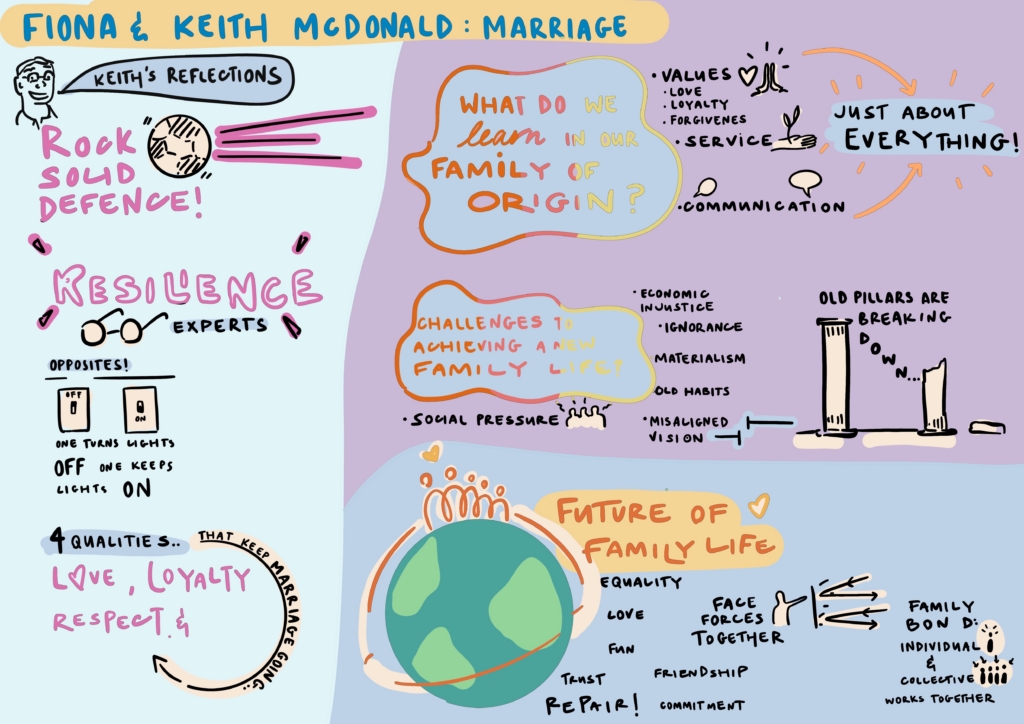 FIONA & KEITH MCDONALD: MARRIAGE
KEITH'S REFLECTIONS
ROCK
SOLID
DEFENCE!
RESILIENCE
EXPERTS
OPPOSITES!
OFF
ON
ONE TURNS LIGHTS
OFF ONE KEEPS
LIGHTS ON
4 QUALITIES..
THAT KEEP MARRIAGE GOING..
LOVE, LOYALTY
RESPECT &
WHAT DO WE
learn IN OUR
FAMILY OF
ORIGIN?
• VALUES
• LOVE
• LOYALTY
• FORGIVENES
• SERVICE
• COMMUNICATION
JUST ABOUT
EVERYTHING!
CHALLENGES TO
ACHIEVING A NEW
FAMILY LIFE?
• SOCIAL PRESSURE
• ECONOMIC
INJUSTICE
• IGNORANCE
MATERIALISM
OLD HABITS
• MISALIGNED
VISION
OLD PILLARS ARE
BREAKING
DOWN...
FUTURE OF
FAMILY LIFE
EQUALITY
LOVE
FUN
TRUST
FRIENDSHIP
REPAIR!
COMMITMENT
FACE
FORCES
TOGETHER
FAMILY
BOND:
INDIVIDUAL
&
COLLECTIVE
WORKS TOGETHER